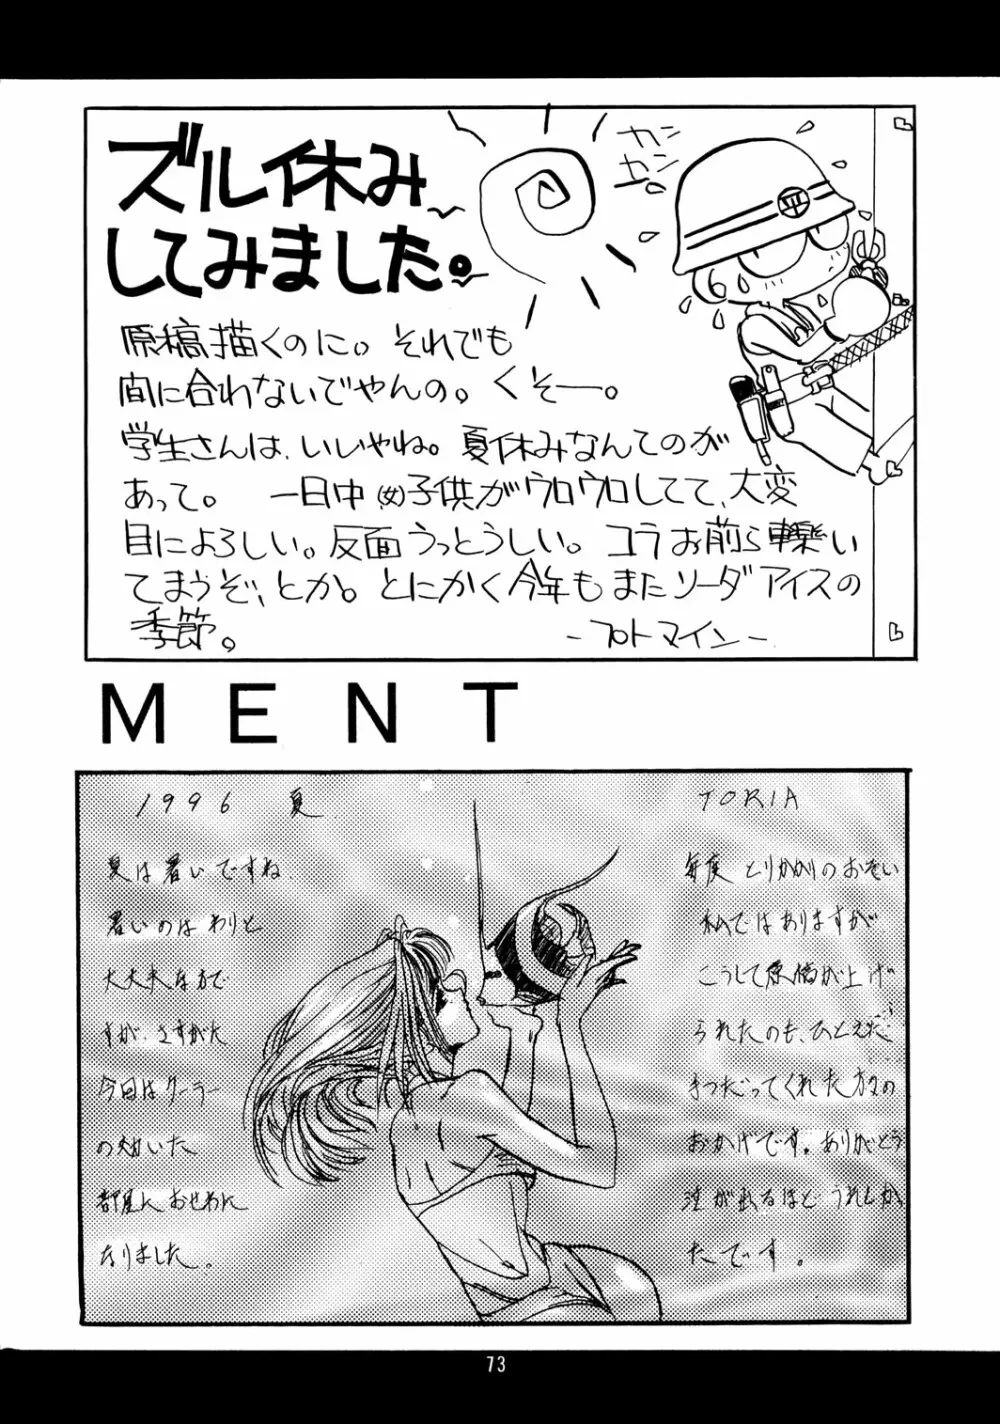 ズル休み
してみました。
カン
カン
原稿描くのに。それでも
間に合わないでやんの。くそー。
学生さんは、いいやね。夏休みなんてのが
あって。 一日中(女)子供がウロウロしてて、大変
目によろしい。反面うっとうしい。コラお前ら轢い
てまうぞ、とか。とにかく今年もまたソーダアイスの
季節。 -プロトマイン-
MENT
1996 夏
夏は暑いですね.
暑いのはわりと
大丈夫なので
すが、さすがに
今回はクーラー
の効いた
部屋に おせわに
なりました。
TORIA
毎度 とりかかりのおそい
私ではありますが
こうして原稿が上げ
られたのも、ひとえに
手つだってくれた方々の
おかげです。ありがとう
涙が出るほど うれしかっ
たです。
73